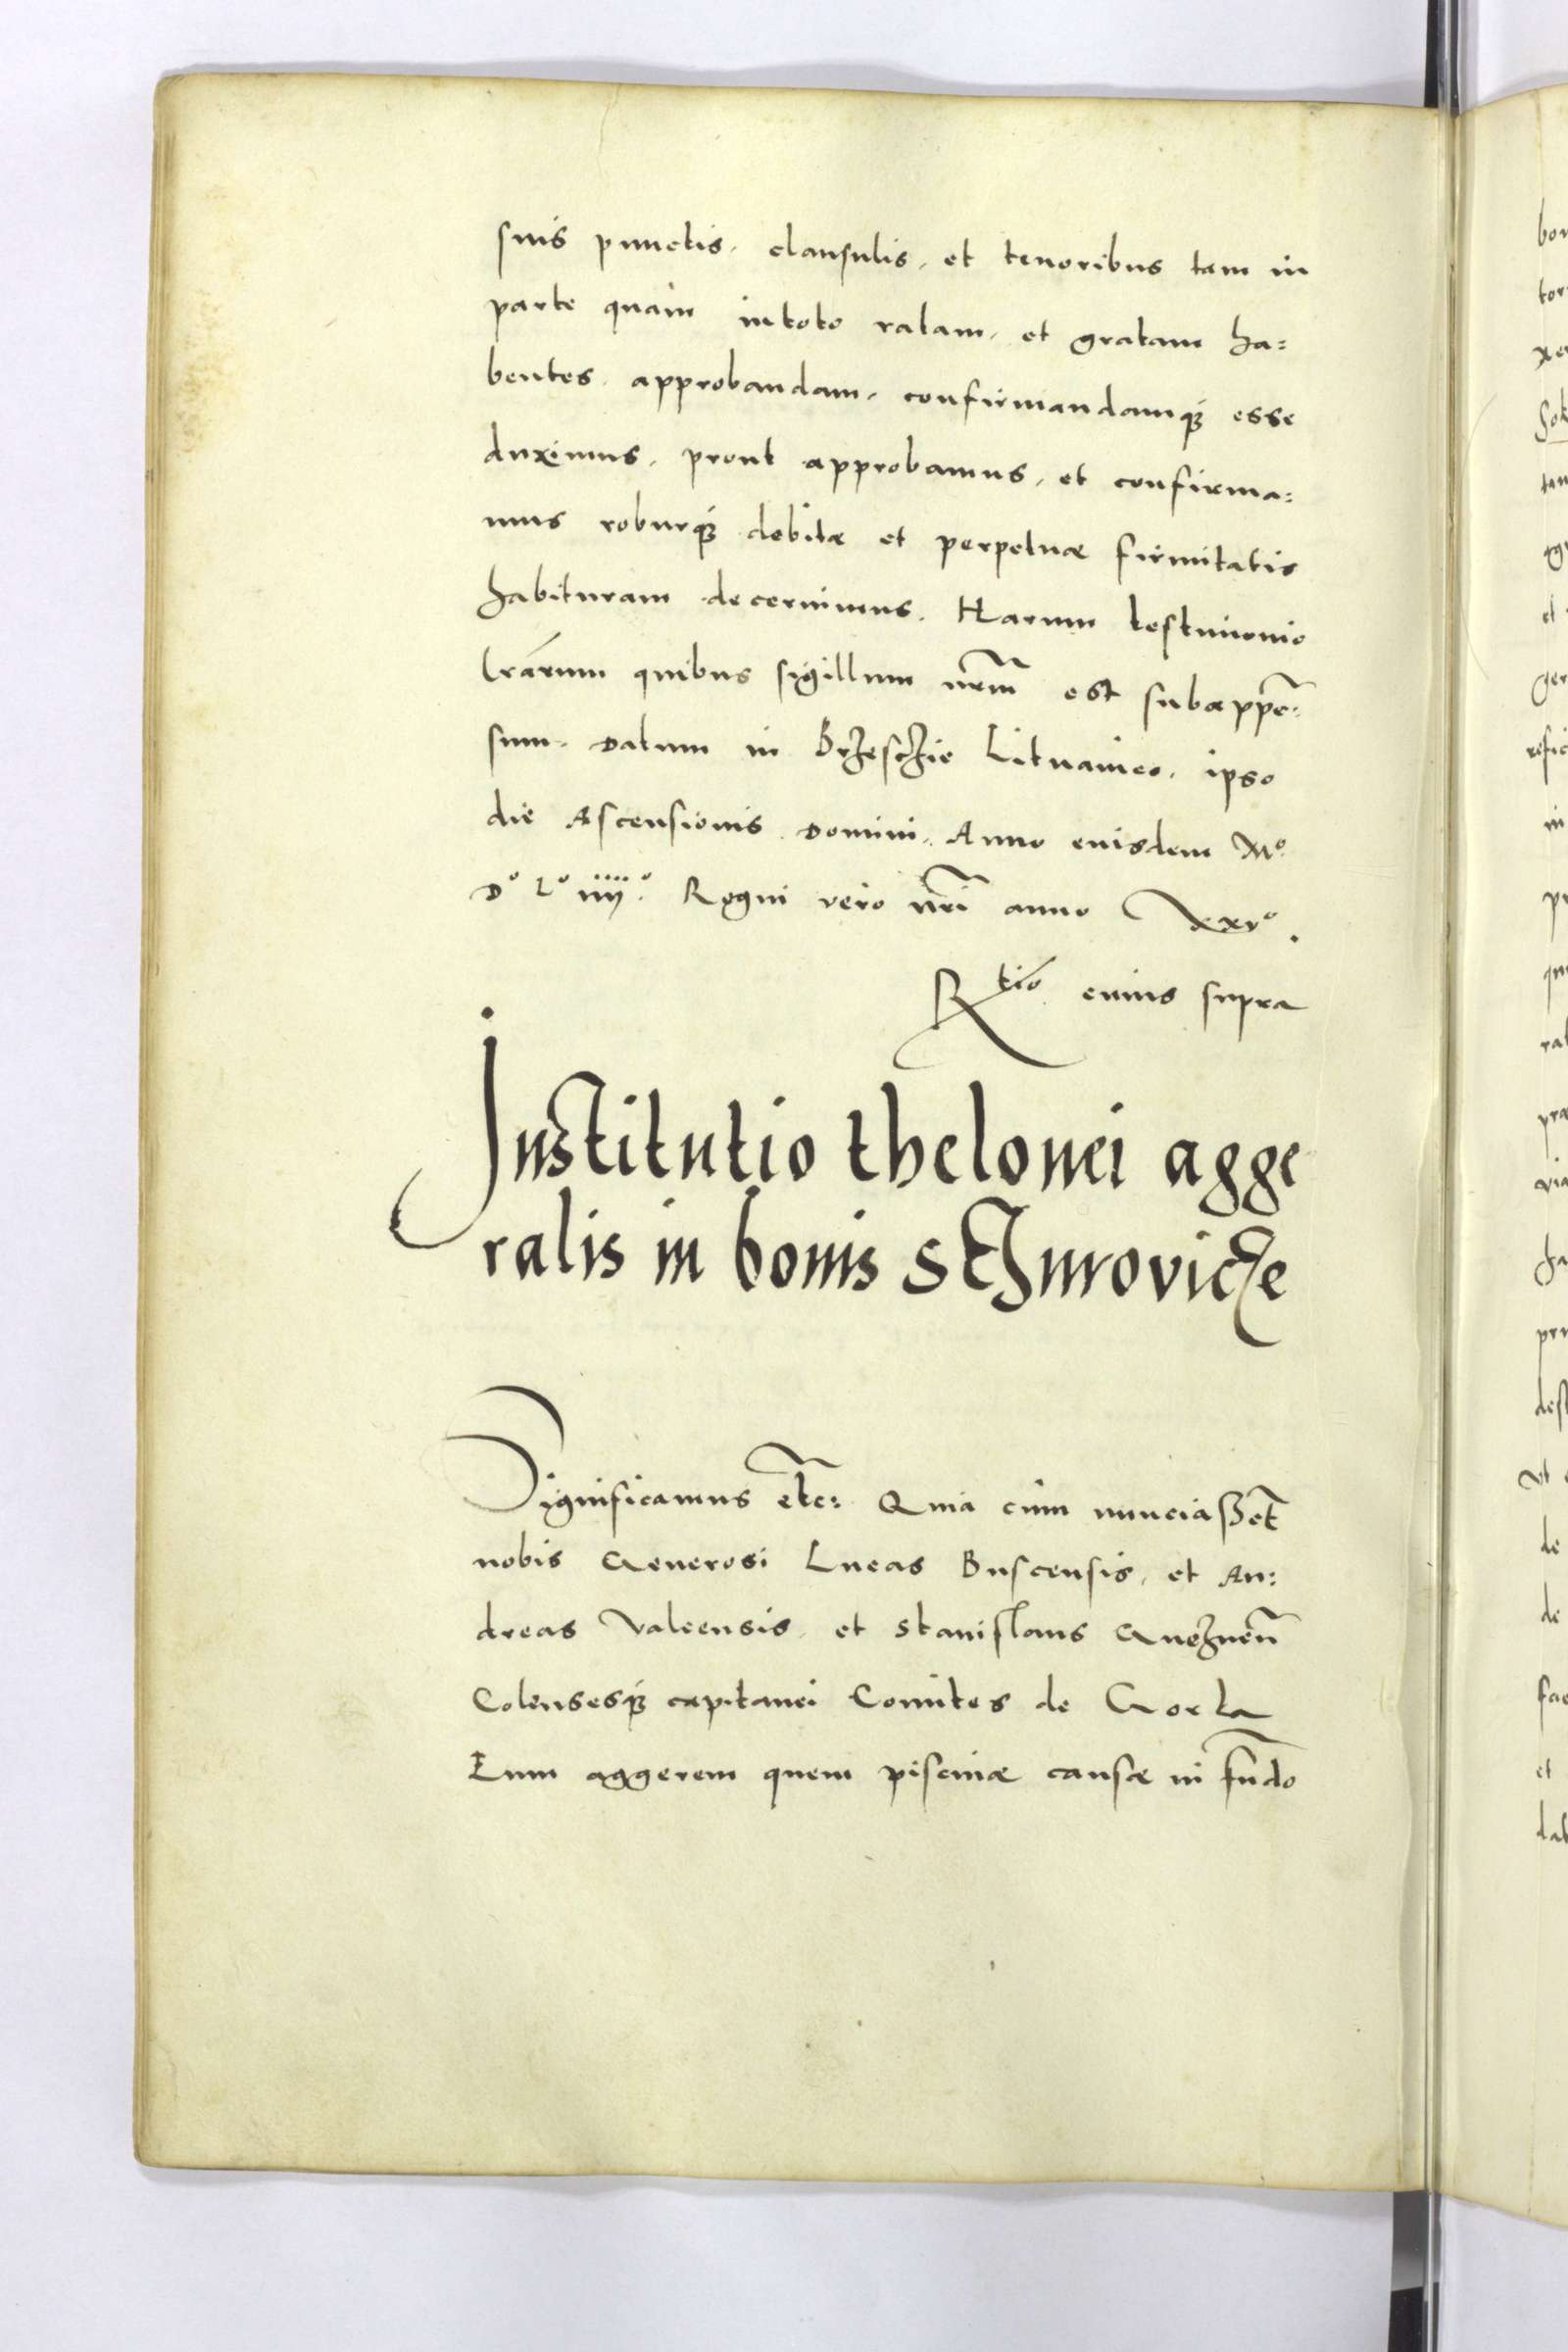 suis punctis, clausulis, et tenoribus tam in
parte quàm in toto ratam, et gratam ha=
bentes, approbandam, confirmandamq; esse
duximus, prout approbamus, et confirma=
mus roburq; debitæ et perpetuæ firmitatis
habituram decernimus. Harum testimonio
lrarum quibus sigillum nrm̃ est subappẽ=
sum. Datum in Brzesczie Lituanico, ipso
die Ascensionis Domini. Anno euisdem Mº
Dº Lº iiiiº. Regni vero nr̃i anno xxvº.
Rtio cuius supra
Institutio thelonei agge
ralis in bonis Sczurovicze
Significamus etc̃: Quia cùm nunciassẽt
nobis Generosi Lucas Buscensis, et An=
dreas Valcensis, et Stanislaus Gneznẽn
Colensesq; capitanei Comites de Gorka
Eum aggerem quem piscinæ causæ in fundo